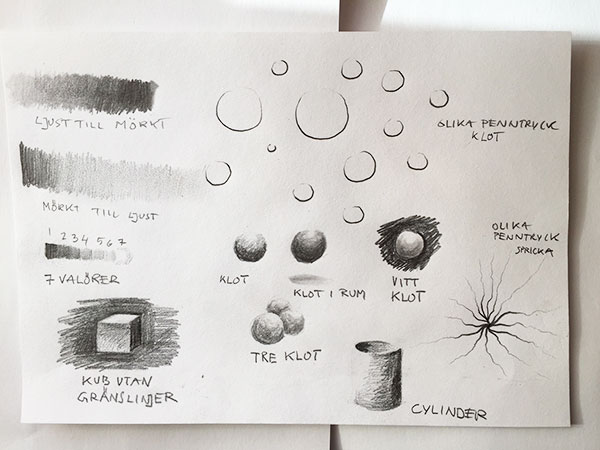 LJUST TILL MÖRKT
OLIKA PENNTRYCK
KLOT
MÖRKT TILL LJUST
1 2 3 4 5 6 7
7 VALÖRER
KLOT
KLOT I RUM
VITT
KLOT
OLIKA
PENNTRYCK
SPRICKA
TRE KLOT
KUB UTAN
GRÄNSLINJER
CYLINDER